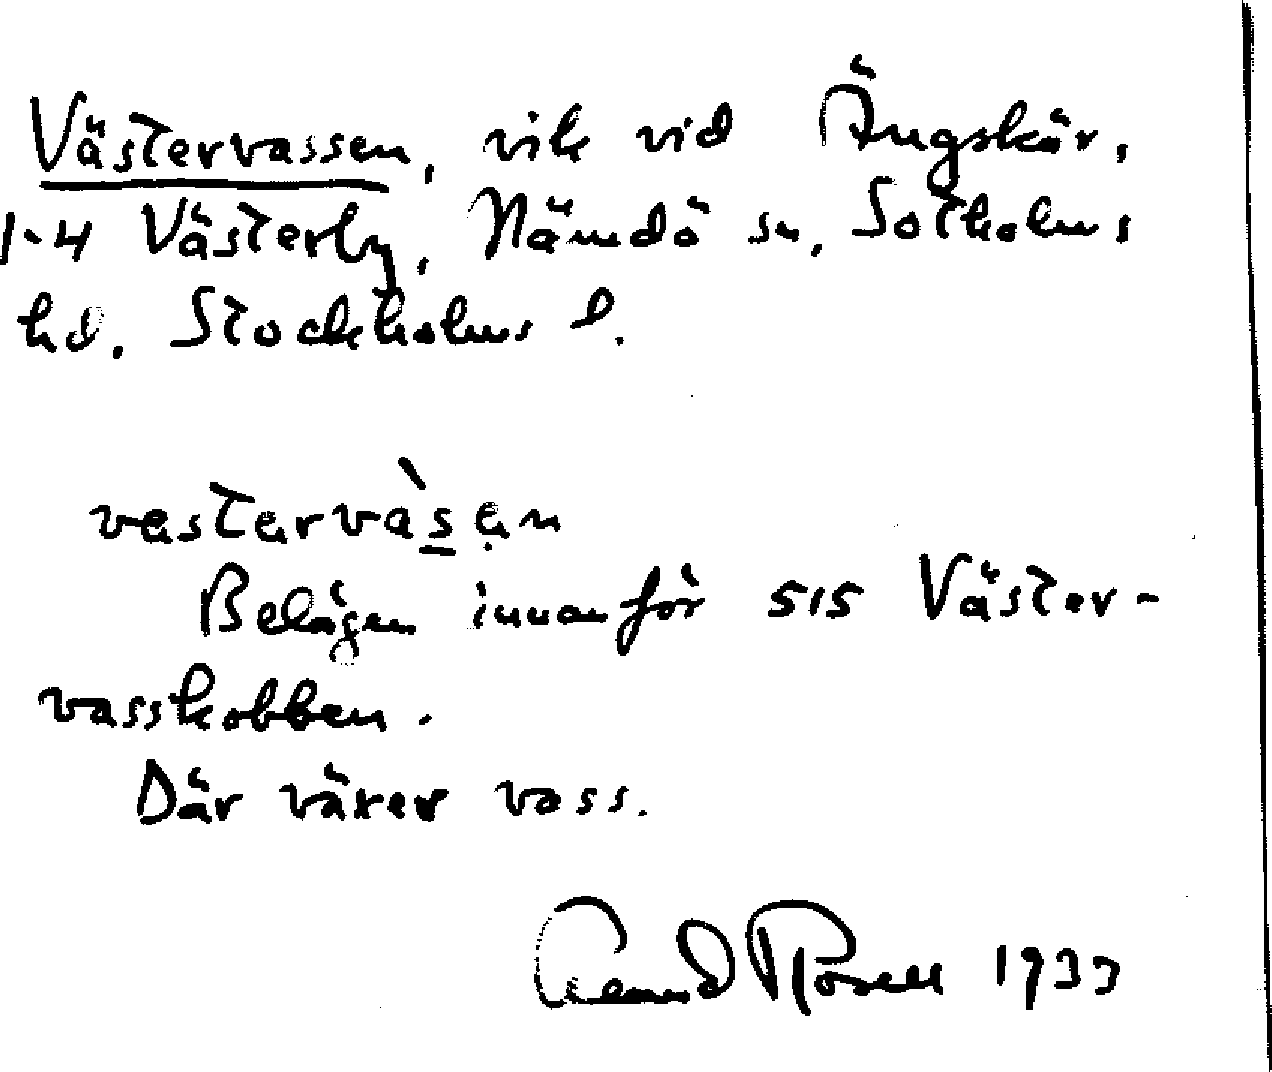 Västervassen, vik vid Ängskär,
1-4 Västerby, Nämdö sn, Sotholms
hd. Stockholms l.
vestervàsen
Belägen innanför 515 Väster-
vasskobben.
Där växer vass.
Rosell 1933